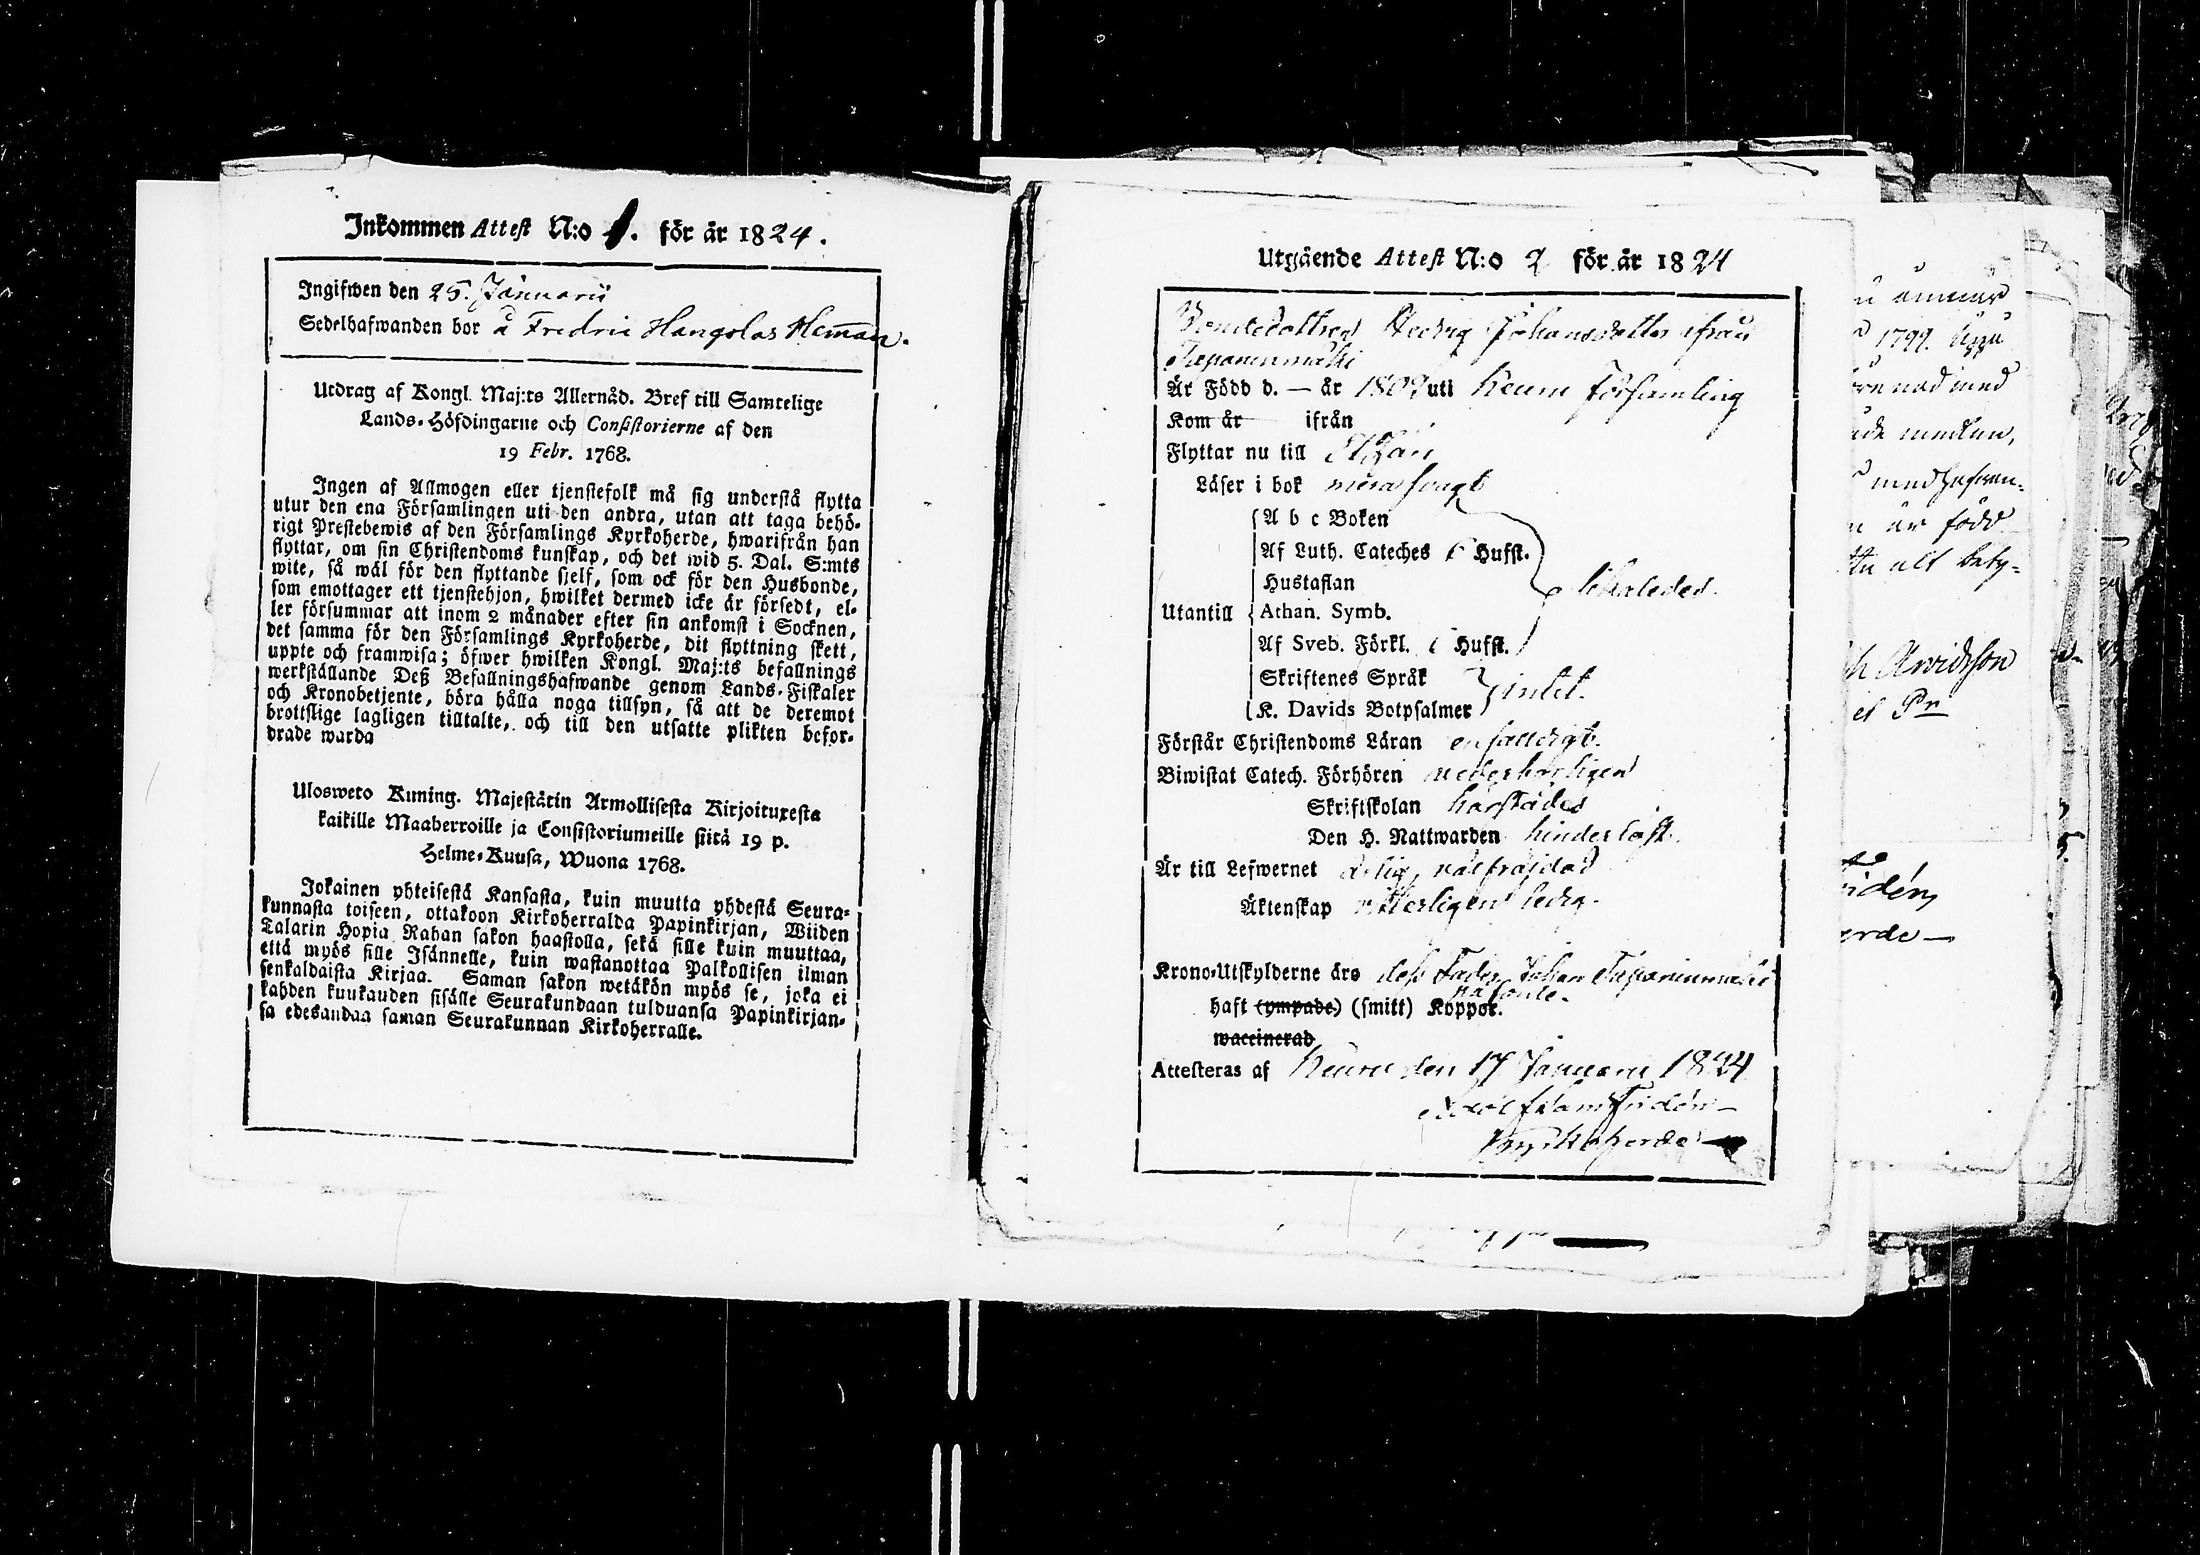 Inkommen Attest N:o 1. för år 1824.
Ingifwen den 25. Januarii
Sedelhafwanden bor å Fredric Hangolas Heman.
Utdrag af Kongl. Maj:ts Allernåd. Bref till Samtelige
Lands-Höfdingarne och Consistorierne af den
19 Febr. 1768.
Ingen af Allmogen eller tjenstefolk må sig understå flytta
utur den ena Församlingen uti den andra, utan att taga behö-
rigt Prestebewis af den Församlings Kyrkoherde, hwarifrån han
flyttar, om sin Christendoms kunskap, och det wid 5. Dal. S:mts
wite, så wäl för den flyttande sjelf, som ock för den Husbonde,
som emottager ett tjenstehjon, hwilket dermed icke är försedt, el-
ler försummar att inom 2 månader efter sin ankomst i Socknen,
det samma för den Församlings Kyrkoherde, dit flyttning skett,
uppte och framwisa; öfwer hwilken Kongl. Maj:ts befallnings
werkställande Deß Befallningshafwande genom Lands-Fiskaler
och Kronobetjente, böra hålla noga tillsyn, så att de deremot
brottslige lagligen tilltalte, och till den utsatte plikten befor-
drade warda
Ulosweto Kuning. Majestätin Armollisesta Kirjoituxesta
kaikille Maaherroille ja Consistoriumeille siitä 19 p.
Helme-Kuusa, Wuona 1768.
Jokainen yhteisestä Kansasta, kuin muutta yhdestä Seura-
kunnasta toiseen, ottakoon Kirkoherralda Papinkirjan, Wiiden
Talarin Hopia Rahan sakon haastolla, sekä sille kuin muuttaa,
että myös sille Isännelle, kuin wastanottaa Palkollisen ilman
senkaldaista Kirjaa. Saman sakon wetäkön myös se, joka ei
kahden kuukauden sisälle Seurakundaan tulduansa Papinkirjan-
sa edesandaa saman Seurakunnan Kirkoherralle.
Utgående Attest N:o 2 för år 1824
Bondedottren Hedvig Johansdotter ifrån
Taparinmäki
Är Född d. — år 1809 uti Keuru Församling
Kom år ifrån
Flyttar nu till
Läser i bok swagt
A b c Boken
Af Luth. Cateches Hufst.
Hustaflan
Utantill Athan. Symb.
Af Sveb. Förkl. Hufst.
Skriftenes Språk
K. Davids Botpsalmer intet.
Förstår Christendoms Läran enfaldigt.
Biwistat Catech. Förhören wederbörligen
Skriftskolan härstädes
Den H. Nattwarden hinderlöst.
Är till Lefwernet ärlig, välfräjdad
Äktenskap witterligen ledig.
Krono-Utskylderne äro deß Fader Johan Taparinmäki
påförde.
haft (ympade) (smitt) Koppor.
waccinerad
Attesteras af Keuru den 17 Januarii 1824
Kyrkoherde
1799.
med
är född
alt bety-
Arvidsson